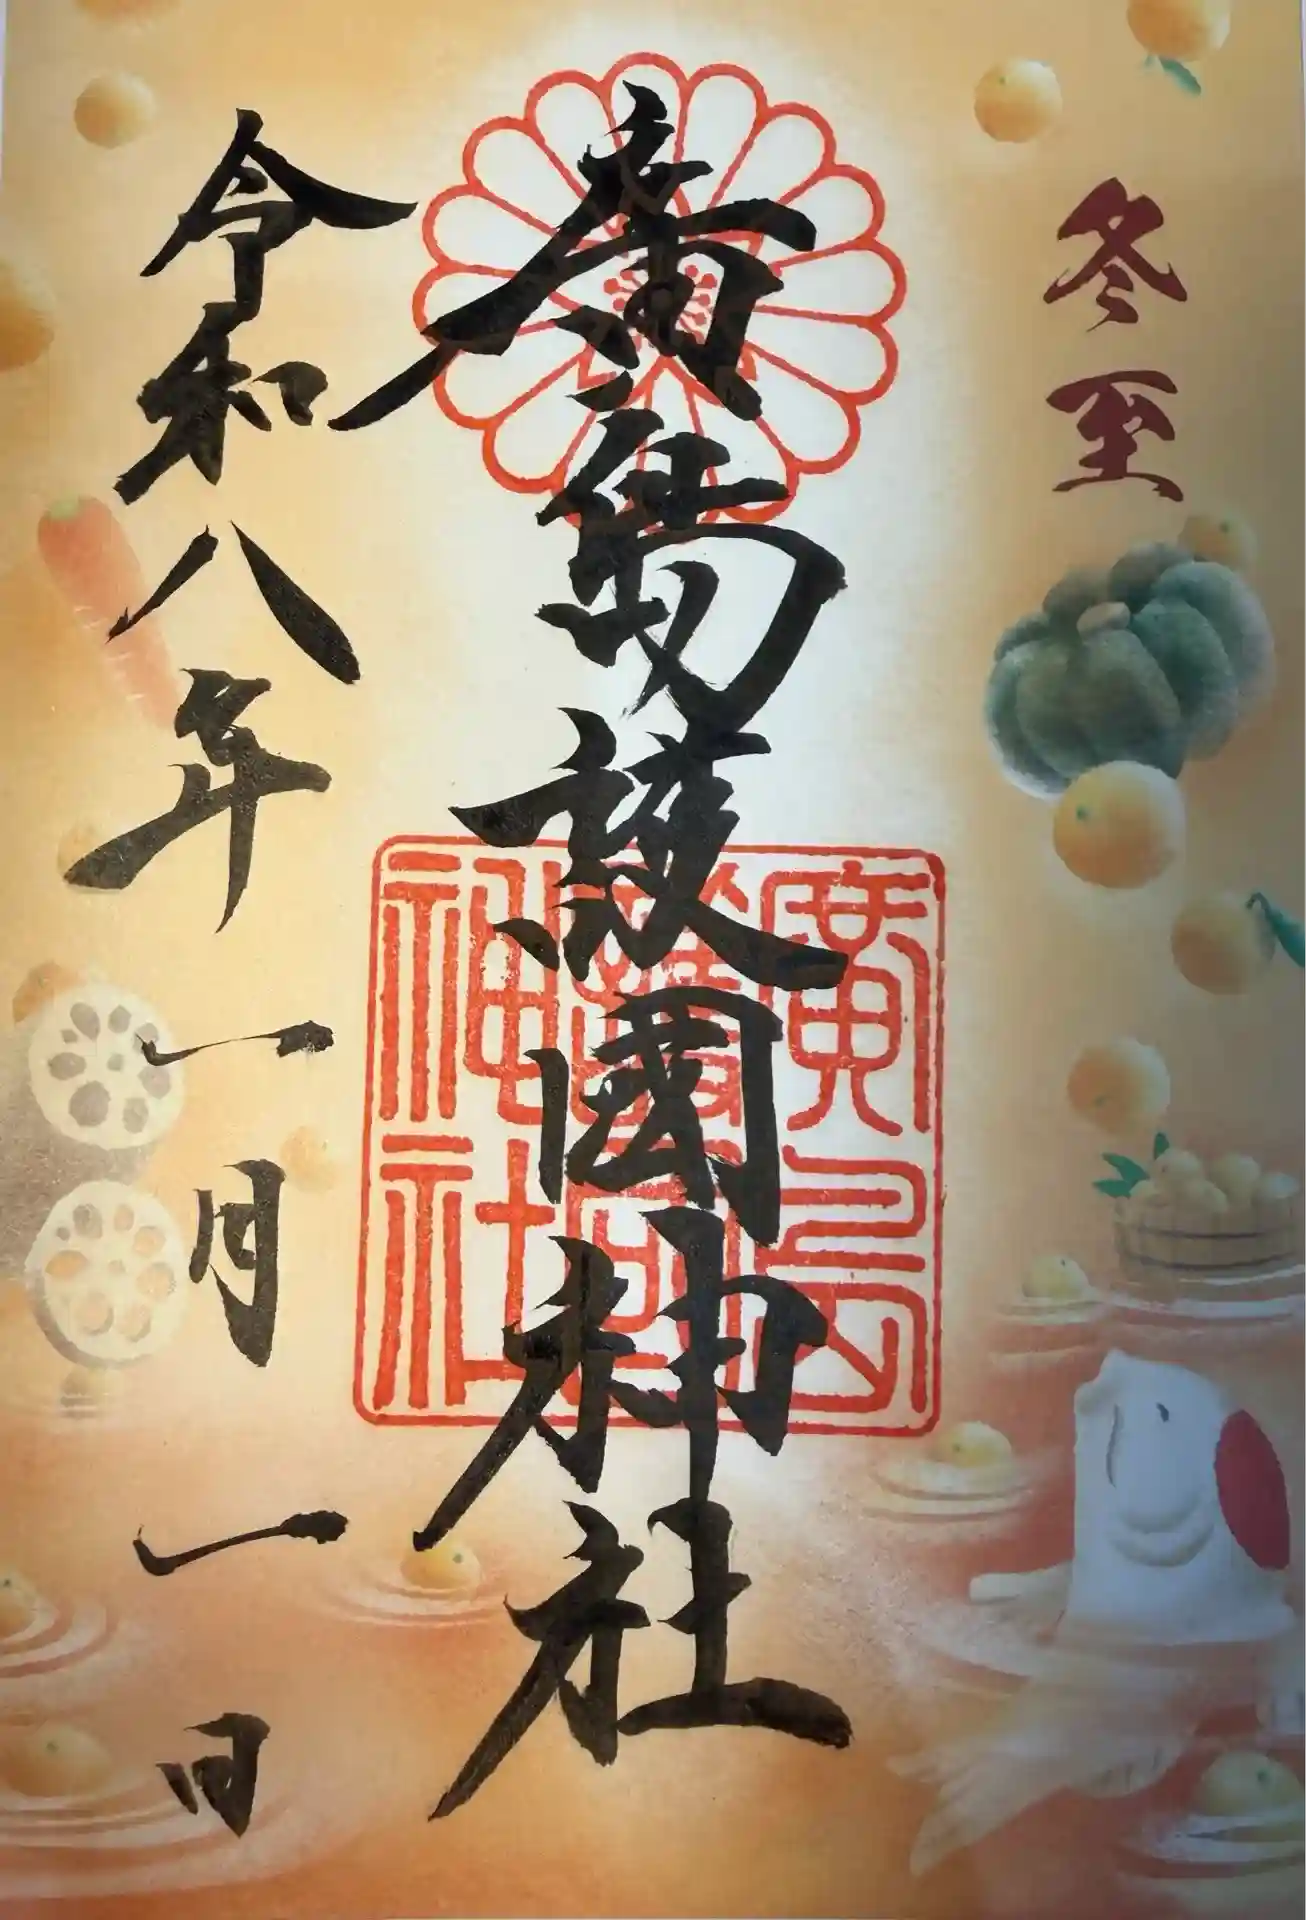 冬至
廣島護國神社
廣島
護國
神社
令和八年一月一日